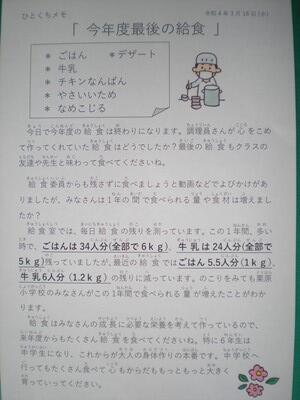 ひとくちメモ
令和4年3月16日(水)
「 今年度最後の給食 」
* ごはん　* デザート
* 牛乳
* チキンなんばん
* やさいいため
* なめこじる
今日で今年度の給食は終わりになります。調理員さんが心をこめ
て作ってくれていた給食はどうでしたか？最後の給食もクラスの
友達や先生と味わって食べてくださいね。
給食委員からも残さずに食べましょうと動画などでよびかけがあ
りましたが、みなさんは1年の間で食べられる量や食材は増えまし
たか？
給食室では、毎日給食の残りを測っています。この1年間、多い
時で、ごはんは34人分(全部で6kg)、牛乳は24人分(全部で
5kg)残っていましたが、最近の給食ではごはん5.5人分(1kg)、
牛乳6人分(1.2kg)の残りに減っています。のこりをみても栗原
小学校のみなさんがこの1年間で食べられる量が増えたことがわか
ります。
給食はみなさんの成長に必要な栄養を考えて作っているので、
来年度からもたくさん給食を食べてくださいね。特に6年生は
中学生になり、これからが大人の身体作りの本番です。中学校へ
行ってもたくさん食べて心もからだももっともっと大きく
育っていってください。